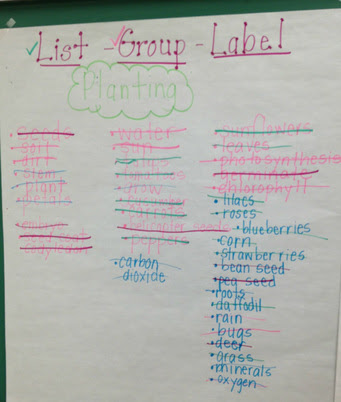 ✓List - ✓Group - Label
Planting
• seeds
• soil
• dirt
• stem
• plant
• petals
• water
• sun
• tulips
• tomatoes
• grow
• cucumber
• carrots
• helicopter seeds
• peppers
• carbon
dioxide
• sunflowers
• leaves
• photosynthesis
• germidate
• chlorophyll
• lilacs
• roses
• blueberries
• corn
• strawberries
• bean seed
• pea seed
• roots
• daffodil
• rain
• bugs
• deer
• grass
• minerals
• oxygen